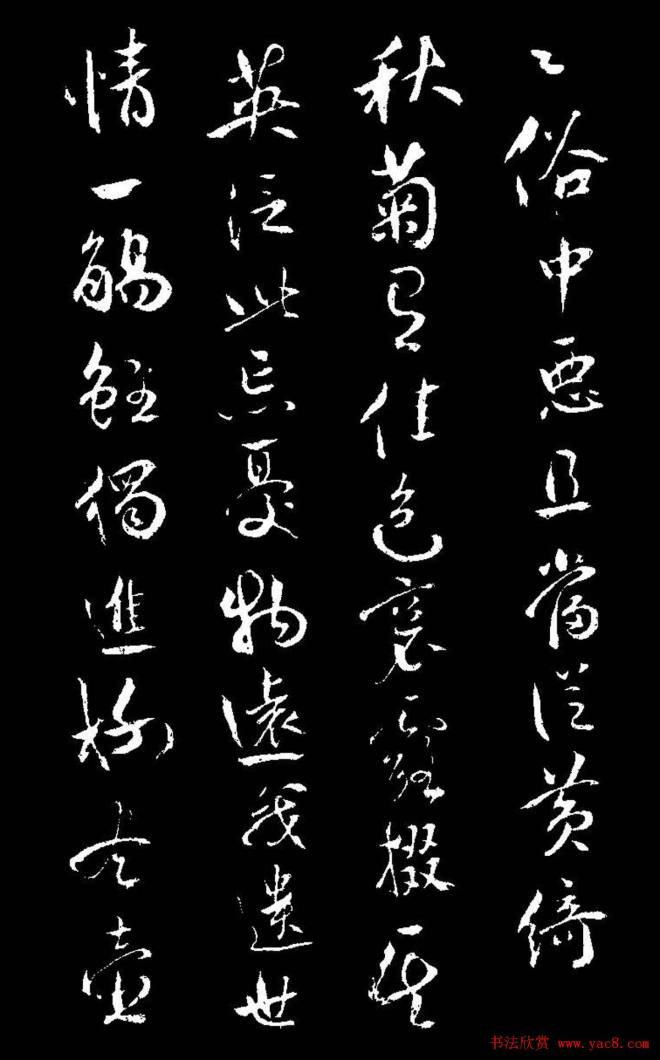 々俗中惡且當從黃綺
秋菊有佳色裛露掇其
英泛此忘憂物遠我遺世
情一觴雖獨進杯盡壺
书法欣赏 www.yac8.com